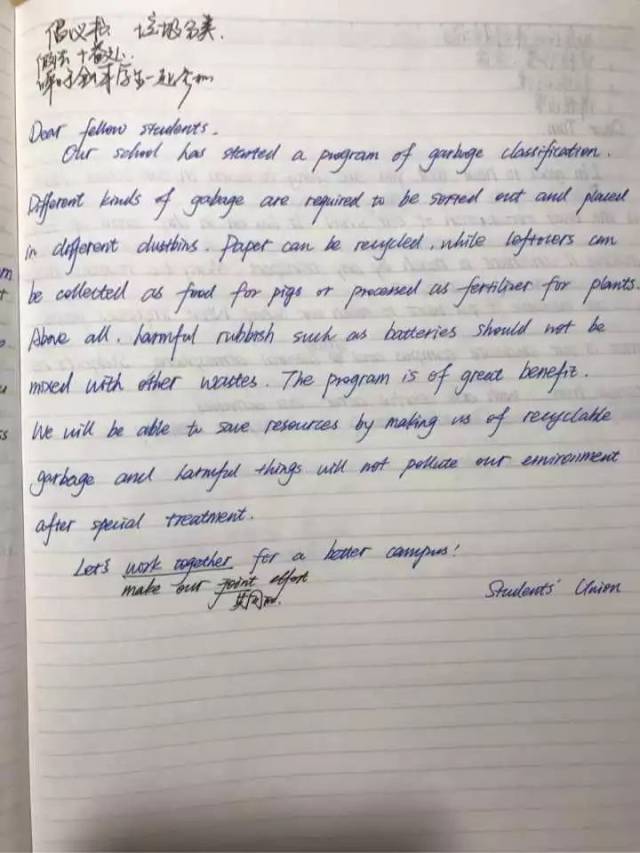 倡议书 垃圾分类.
做法 + 益处
呼吁全体学生一起参加
Dear fellow students.
Our school has started a program of garbage classification.
Different kinds of garbage are required to be sorted out and placed
in different dustbins. Paper can be recycled, while leftovers can
be collected as food for pigs or processed as fertilizer for plants.
Above all, harmful rubbish such as batteries should not be
mixed with other wastes. The program is of great benefit.
We will be able to save resources by making us of recyclable
garbage and harmful things will not pollute our environment
after special treatment.
Let's work together for a better campus!
make our joint effort
共同的.
Students' Union